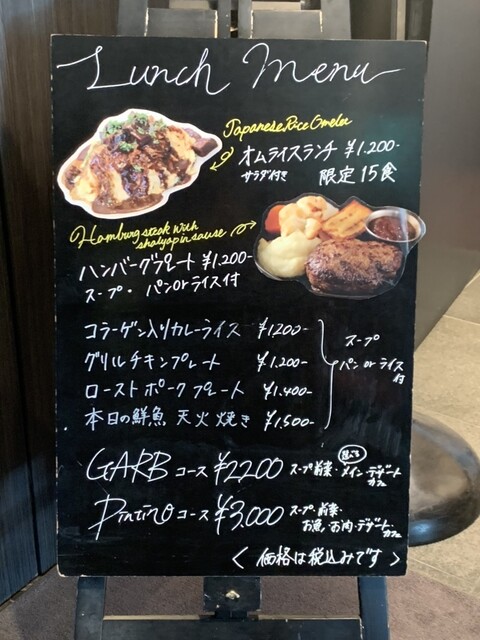 Lunch Menu
Japanese Rice Omelet
オムライスランチ ¥1.200-
サラダ付き 限定 15食
Hamburg steak with
shalyapin sause
ハンバーグプレート ¥1.200-
スープ・パンorライス付
コラーゲン入りカレーライス ¥1,200-
グリルチキンプレート ¥1.200-
ローストポークプレート ¥1.400-
本日の鮮魚 天火焼き ¥1,500-
スープ
パン or ライス
付
GARBコース ¥2200 スープ・前菜・メイン・デザート
カフェ
コース ¥3,000 スープ・前菜・
お魚・お肉・デザート・
カフェ
<価格は税込みです>